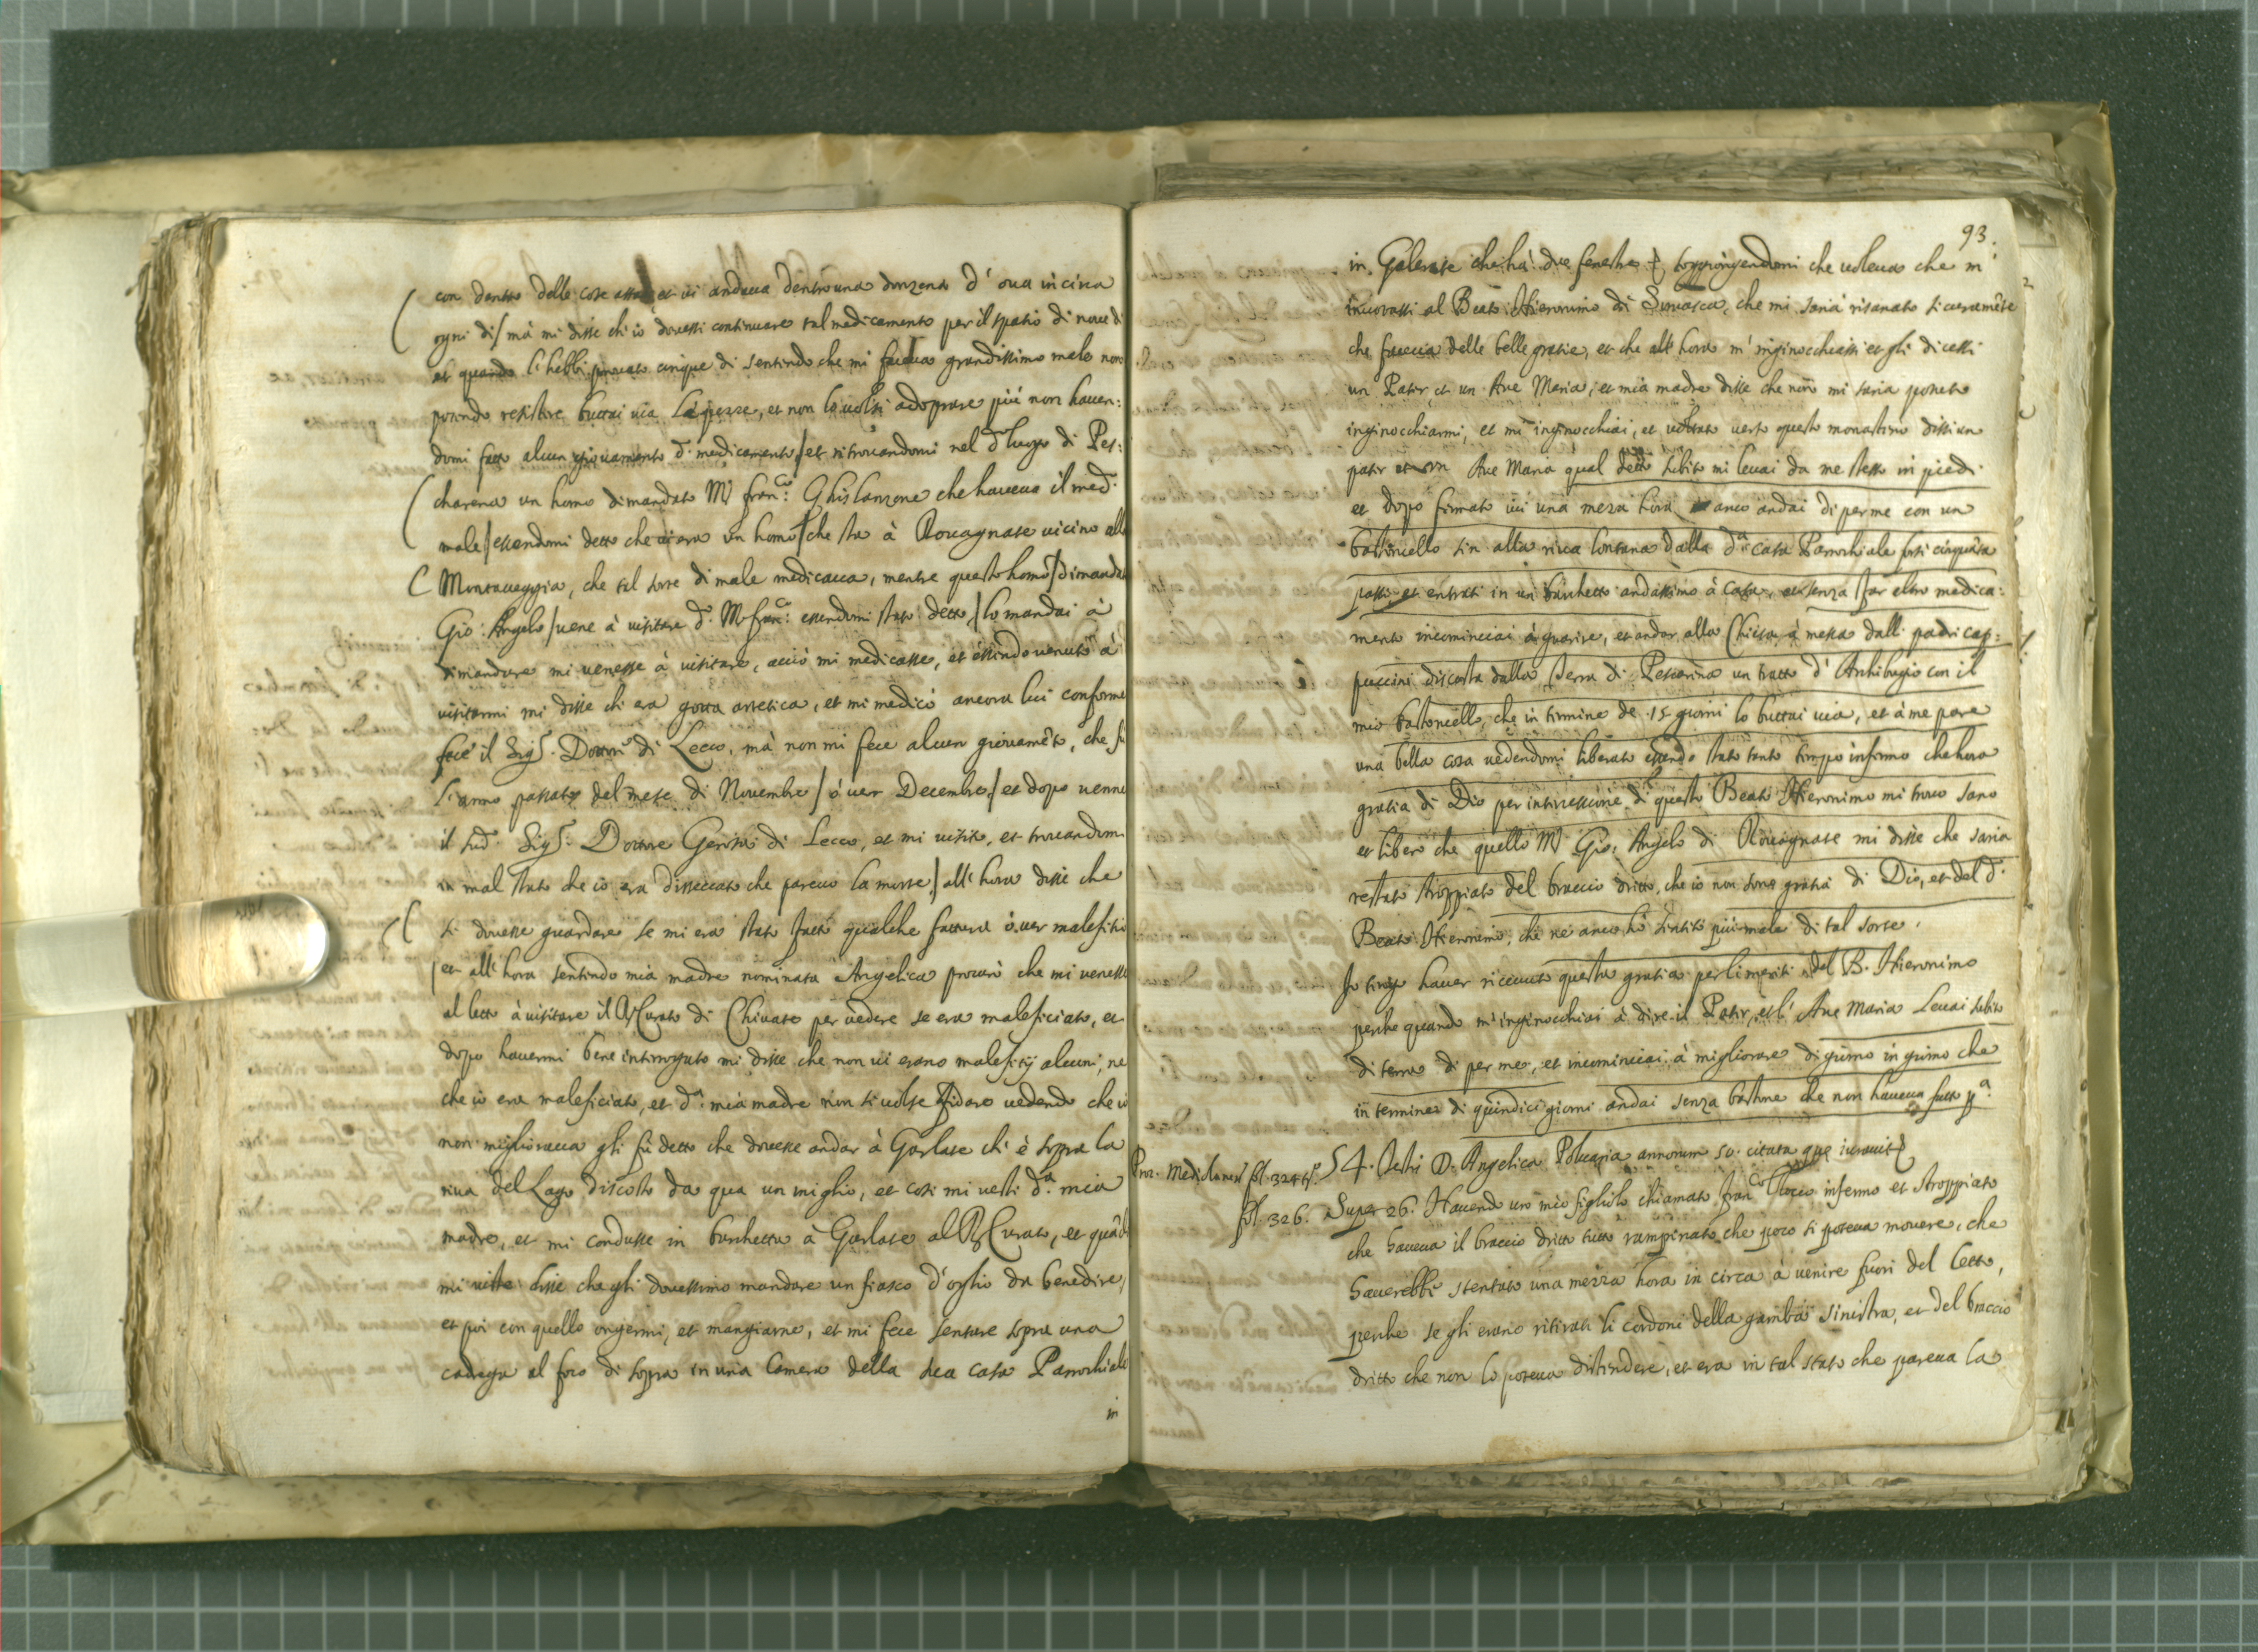 con dentro delle cose attas et ui andaua dentro una donzena d'oua in circa
ogni di/ mà mi disse ch'io douessi continuare tal medicamento per il spatio di noue di
et quando l'hebbi prouato cinque di sentendo che mi faceua grandissimo male non
potendo resistere buttai uia le pezze, et non lo uolsi adoprare più non hauen:
domi fatto alcun giouamento d.o medicamento/ et ritrouandomi nel d.o luogo di Pes:
charena un homo dimandato M. Fran.co Ghislanzone che haueua il med.o
male/ essendomi detto che ui era un homo/ che sta à Rouagnate uicino alla
Montaueggia, che tal sorte di male medicaua, mentre questo homo/ dimandato
Gio: Angelo/ uene à uisitare d.o M. Fran.co essendomi stato detto,/ lo mandai à
dimandare mi uenesse à uisitare, acciò mi medicasse, et essendo uenuto à
uisitarmi mi disse ch'era gotta artetica, et mi medicò ancora lui conforme
fece il Sig.r Dottore di Lecco, mà non mi fece alcun giouamẽto, che fù
l'anno passato del mese di Nouembre/ ò uer Decembre,/ et dopo uenne
il sud.o Sig.r Dottore Gerosa di Lecco, et mi uisitò, et trouandomi
in mal stato che io era disseccato che pareuo la morte,/ all'hora disse che
si douesse guardare se mi era stato fatto qualche fattura ò uer malefitio
/et all'hora sentendo mia madre nominata Angelica procurò che mi uenesse
al letto à uisitare il R. Curato di Chiuate per uedere se era maleficiato, et
dopo hauermi bene interrogato mi disse che non ui erano malefitij alcuni, ne
che io era maleficiato, et d.a mia madre non si uolse fidare uedendo che io
non miglioraua gli fù detto che douesse andar à Garlate ch'è sopra la
riua del Lago discosto da qua un miglio, et cosi mi uestì d.a mia
madre, et mi condusse in barchetta à Garlate al R. Curato, et quãdo
mi uiste disse che gli douessimo mandare un fiasco d'oglio da benedire,
et poi con quello ongermi, et mangiarne, et mi fece sentare sopra una
cadrega al foco di sopra in una Camera della sua casa Parrochiale
in
93.
in Galerate che hà due fenestre soggiongendomi che uoleua che m'
inuotassi al Beato Hieronimo di Sumasca, che mi saria risanato sicuramẽte
che faceua delle belle gratie, et che all'hora m'inginocchiassi et gli dicessi
un Pater, et un Aue Maria, et mia madre disse che non mi saria potuto
inginocchiarmi, et mi inginocchiai, et uoltato uerso questo monastero dissi un
pater et un Aue Maria qual detto subito mi leuai da me stesso in piedi
et dopo firmato iui una meza hora anco andai di per me con un
bastoncello sin alla riua lontana dalla d.a casa Parrochiale forsi cinquãta
passi, et entrati in un barchetto andassimo à casa, et senza far altro medica:
mento incominciai à guarire, et andar alla Chiesa à messa dalli padri cap:
puccini discosta dalla terra di Pescarina un tratto d'Archibugio con il
mio bastoncello, che in termine de 15 giorni lo buttai uia, et à me pare
una bella cosa uedendomi liberato essendo stato tanto tempo infermo che hora
gratia di Dio per intercessione di questo Beato Hieronimo mi trouo sano
et libero che quello M. Gio: Angelo di Rouagnate mi disse che saria
restato stroppiato del braccio dritto, che io non sono gratia di Dio, et del d.o
Beato Hieronimo, che ne anco hò sentito più male di tal sorte.
Io tengo hauer riceuuto questa gratia per li meriti del B. Hieronimo
perche quando m'inginocchiai à dire il Pater, et l'Aue Maria leuai subito
di terra di per me, et incominciai à migliorare di giorno in giorno che
in termine di quindici giorni andai senza bastone che non haueua fatto p.a
Proc. Mediolanen. fol. 324 t.o 54. Testis D. Angelica Poluaria annorum 50. citata que iurauit
fol. 326. Super 26. Hauendo un mio figliolo chiamato Fran.co Tocco infermo et stroppiato
che haueua il braccio dritto tutto rampinato che poco si poteua mouere, che
hauerebbe stentato una mezza hora in circa à uenire fuori del letto,
perche se gli erano ritirati li cordoni della gamba sinistra, et del braccio
dritto che non lo poteua distendere, et era in tal stato che pareua la